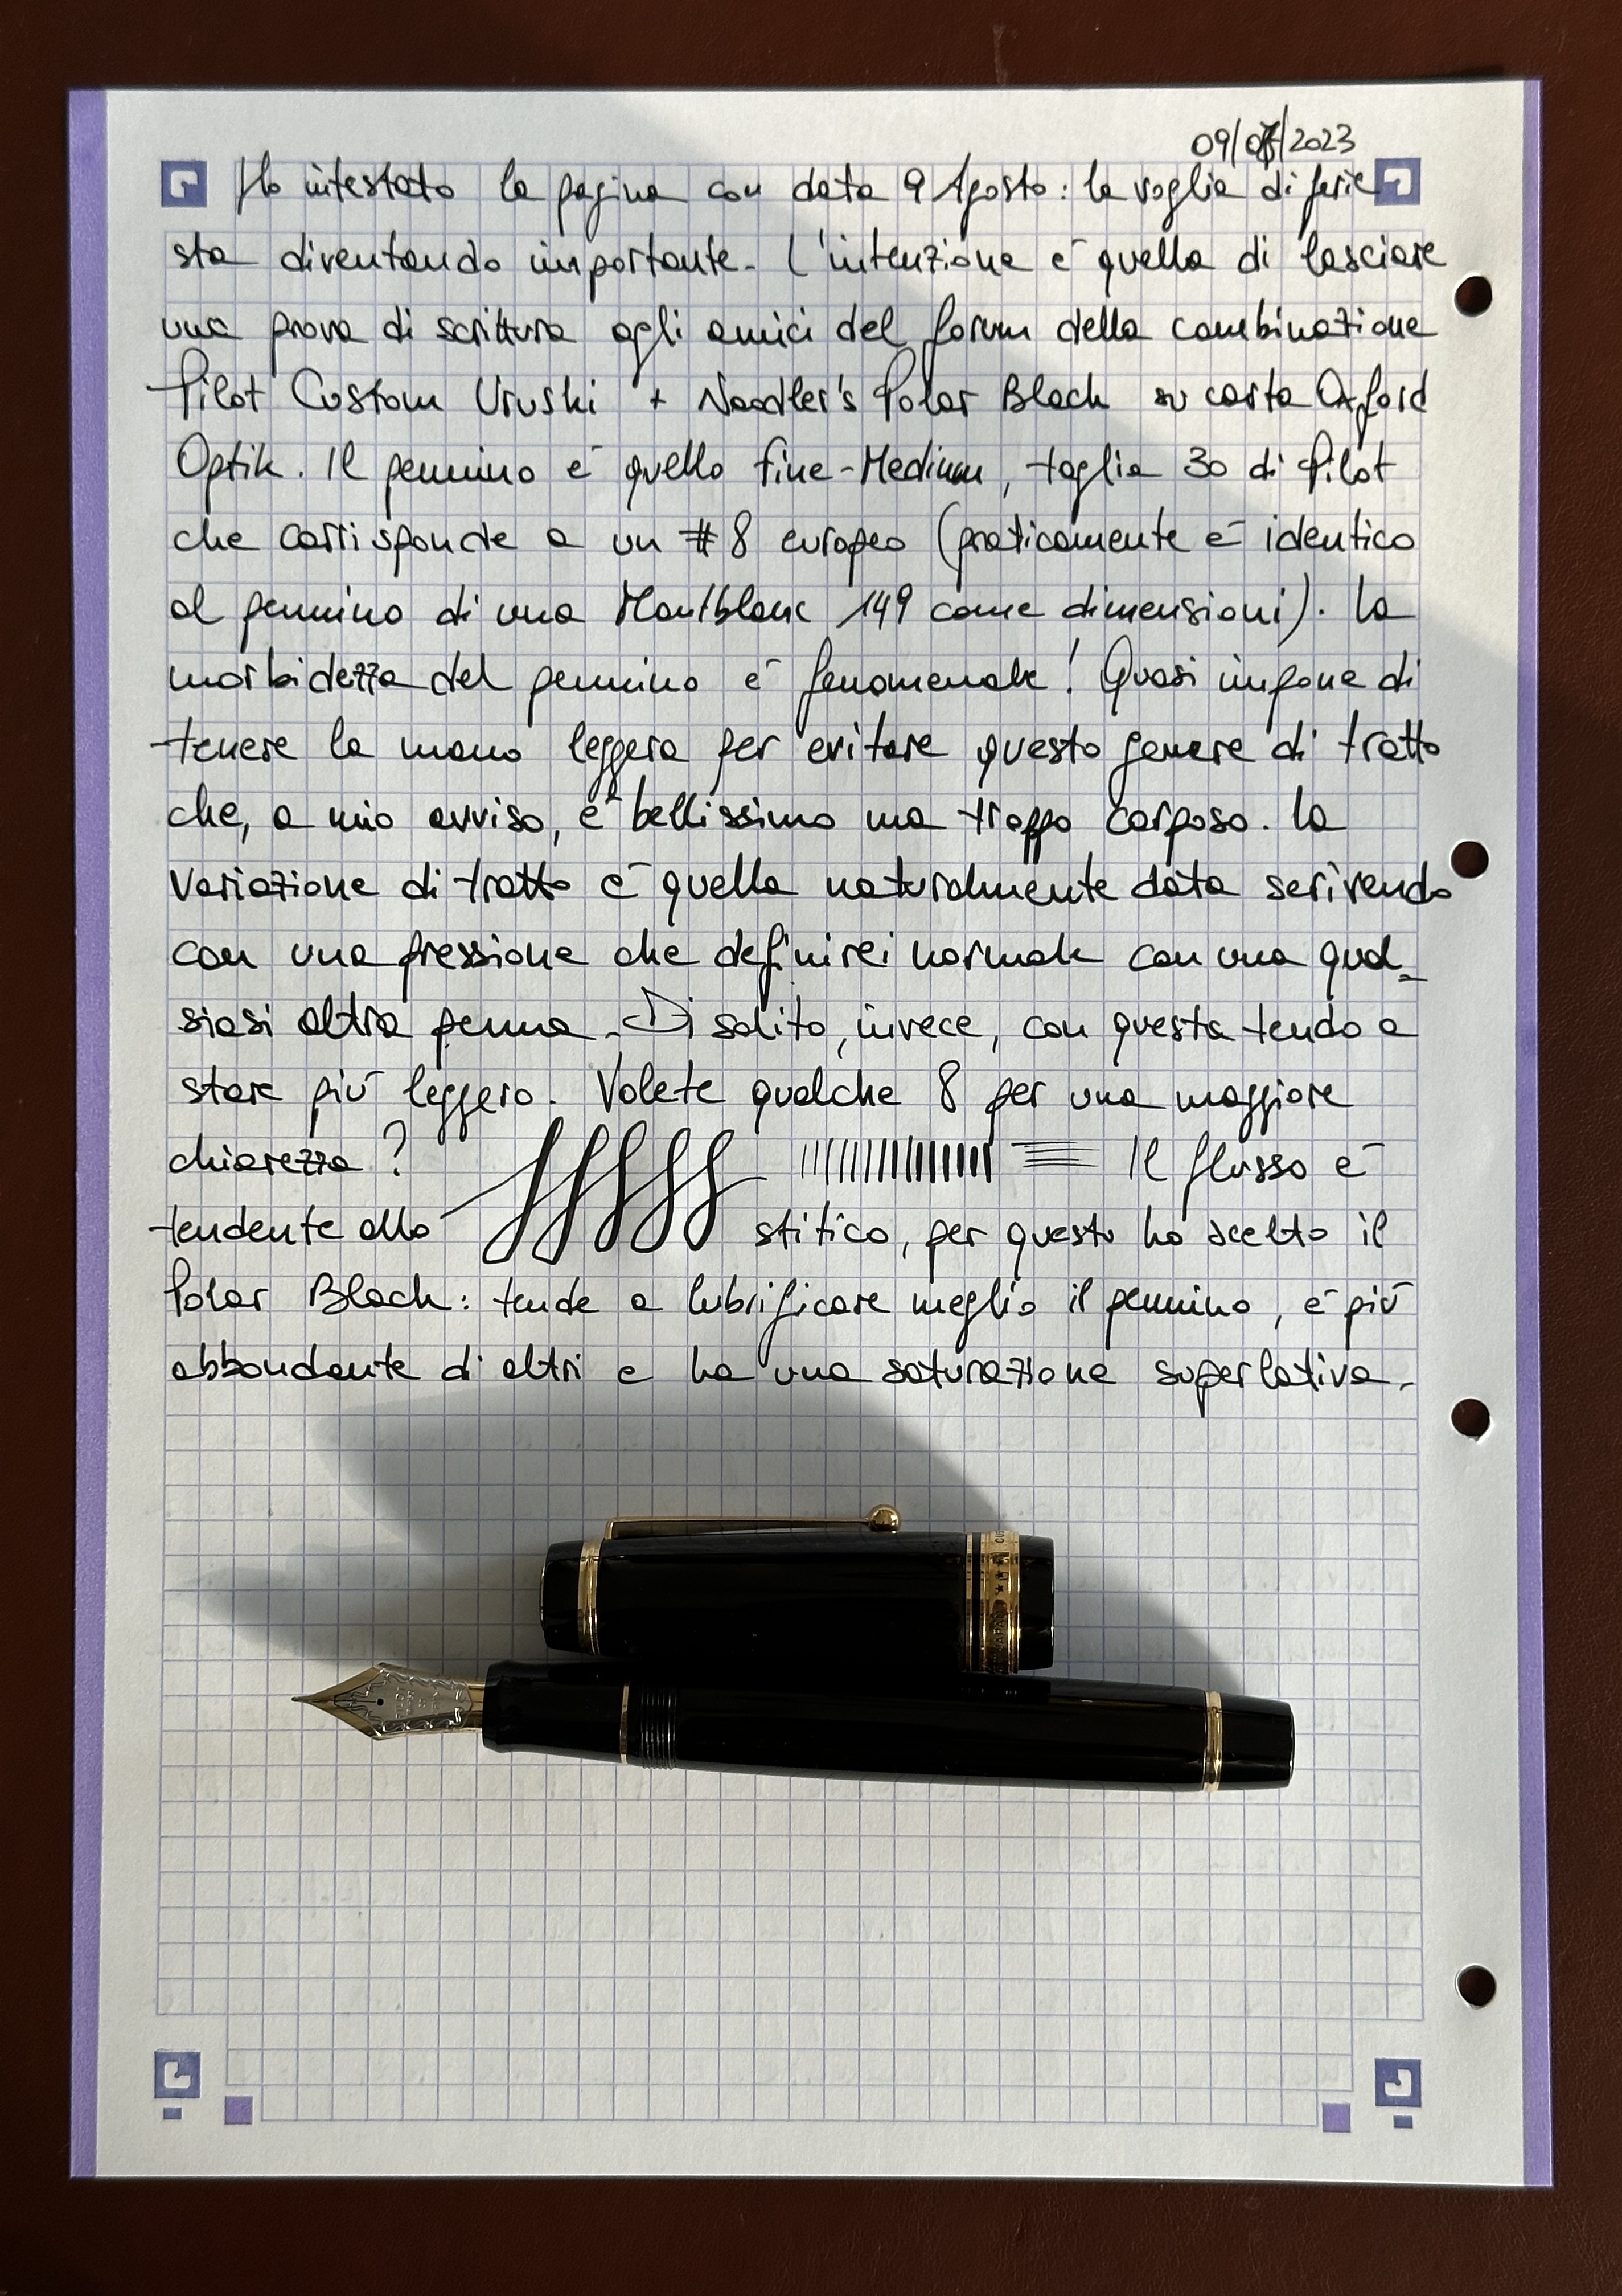 09/07/2023
Ho intestato la pagina con data 9 Agosto: la voglia di ferie
sta diventando importante. L'intenzione è quella di lasciare
una prova di scrittura agli amici del forum della combinazione
Pilot Custom Urushi + Noodler's Polar Black su carta Oxford
Optik. Il pennino è quello Fine-Medium, taglia 30 di Pilot
che corrisponde a un #8 europeo (praticamente è identico
al pennino di una Montblanc 149 come dimensioni). La
morbidezza del pennino è fenomenale! Quasi impone di
tenere la mano leggera per evitare questo genere di tratto
che, a mio avviso, è bellissimo ma troppo corposo. La
variazione di tratto è quella naturalmente data scrivendo
con una pressione che definirei normale con una qual-
siasi altra penna. Di solito, invece, con questa tendo a
stare più leggero. Volete qualche 8 per una maggiore
chiarezza? Il flusso è
tendente allo stitico, per questo ho scelto il
Polar Black: tende a lubrificare meglio il pennino, è più
abbondante di altri e ha una saturazione superlativa.